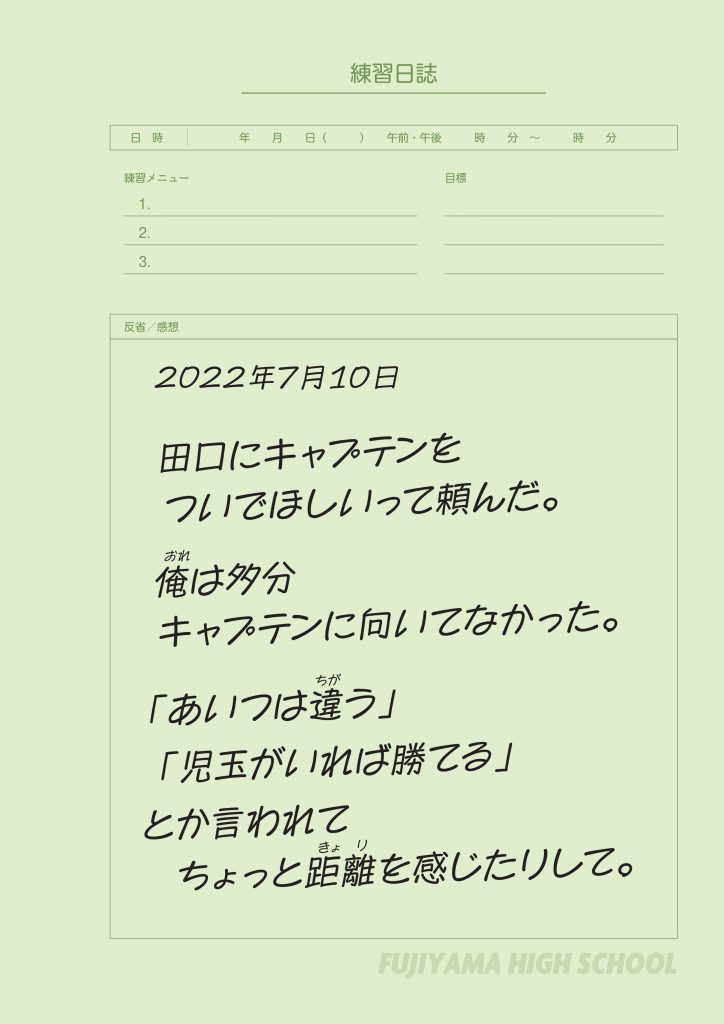 練習日誌
日 時 年 月 日( ) 午前・午後 時 分 ～ 時 分
練習メニュー 目標
1.
2.
3.
反省／感想
2022年7月10日
田口にキャプテンを
ついでほしいって頼んだ。
おれ
俺は多分
キャプテンに向いてなかった。
ちが
「あいつは違う」
「児玉がいれば勝てる」
とか言われて
きょ り
ちょっと距離を感じたりして。
FUJIYAMA HIGH SCHOOL